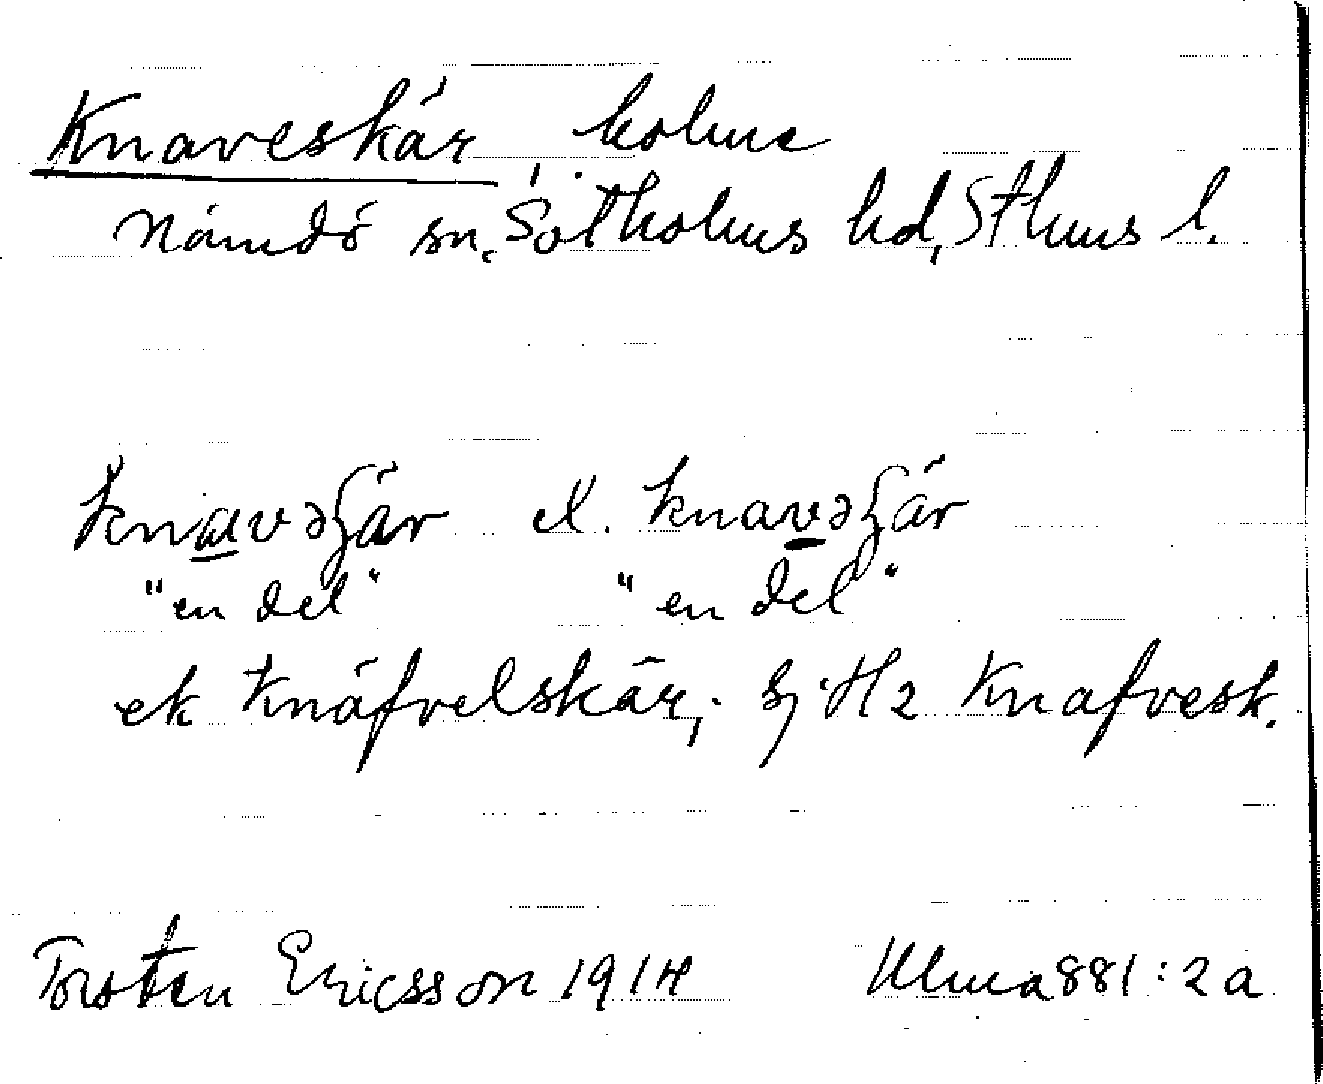 Knaveskär, holme
Nämdö sn, Sotholms hd, Sthms l.
knavəʃär el. knavəʃär
"en del" "en del"
ek Knäfvelskär; sj H2 Knafvesk.
Torsten Ericsson 1914 Ulma 881:2a